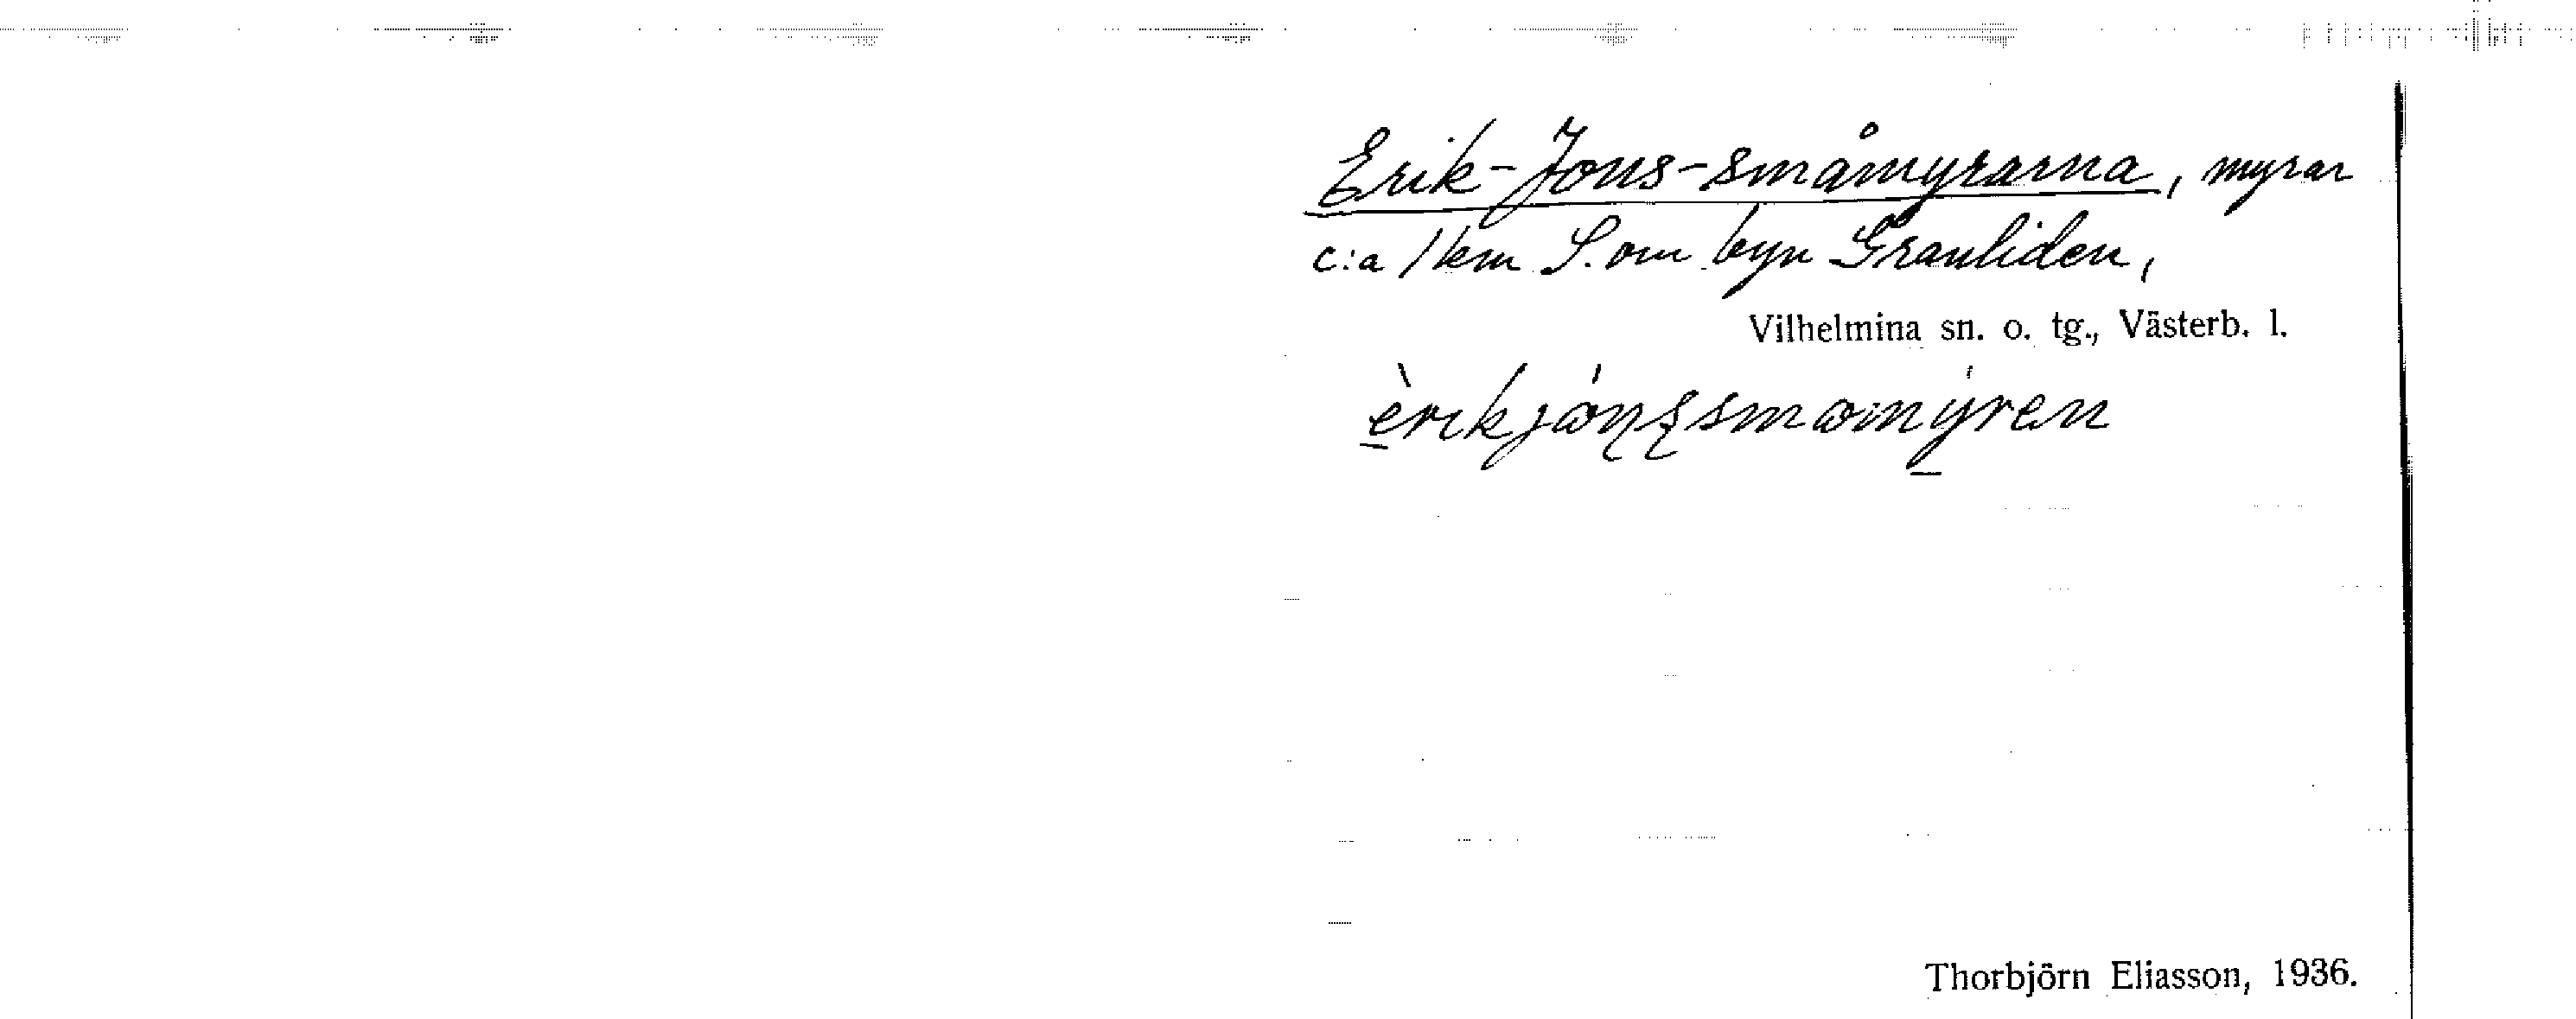 Erik-Jons-småmyrarna, myrar
c:a 1 km S. om byn Granliden,
Vilhelmina sn. o. tg., Västerb. l.
Thorbjörn Eliasson, 1936.